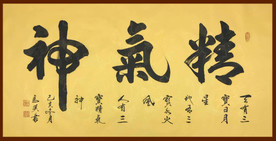 精氣神
天有三
寶日月
星
地有三
寶水火
風
人有三
寶精氣
神